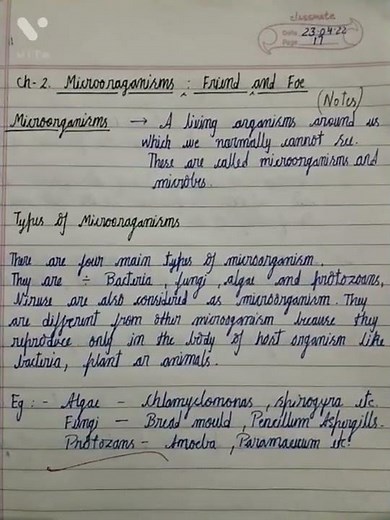 classmate
Date 23.04.22
Page 17
Ch-2. Microoraganisms : Friend and Foe
(Notes)
Microorganisms → A living organisms around us
which we normally cannot see.
These are called microorganisms and
microbes.
Types of Microoraganisms
There are four main types of microorganism.
They are ÷ Bacteria, fungi, algae and protozoans,
Viruse are also considered as microorganism. They
are different from other microorganism because they
reproduce only in the body of host organism like
bacteria, plant or animals.
Eg :- Algae - Chlamyclomonas, spirogyra etc.
Fungi - Bread mould, Pencillum Aspergills.
Protozans - Amoeba, Paramaecum etc.